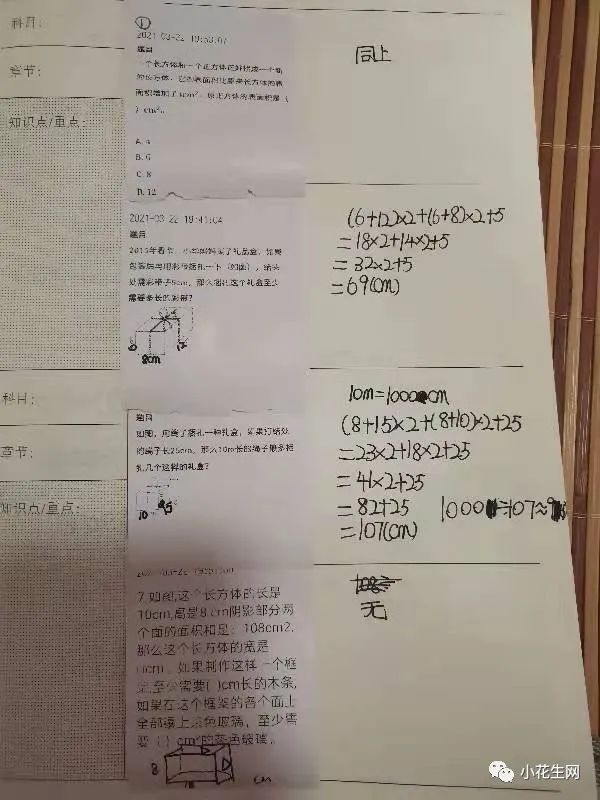 科目:
章节:
知识点/重点:
①
2021-03-22 19:53:07
题目
一个长方体和一个正方体正好拼成一个新
的长方体，
面积增加了
) cm²。
A. 4
B. 6
C. 8
D. 12
同上
2021-03-22 19:41:04
题目
2015年春节，小华妈妈买了礼品盒，
处需彩带长5cm，那么捆扎这个礼盒至少
需要多长的彩带？
6
12
8cm
(6+12)×2+(6+8)×2+5
=18×2+14×2+5
=32×2+5
=69(cm)
科目:
章节:
知识点/重点:
题目
如图，用绳子捆扎一种礼盒，如果打结处
的绳子长25cm，那么10m长的绳子最多捆
扎几个这样的礼盒？
10
10m=1000cm
(8+15)×2+(8+10)×2+25
=23×2+18×2+25
=41×2+25
=82+25
=107(cm)
1000÷107≈9
7.如图,这个长方体的长是
10cm,高是8cm阴影部分两
个面的面积和是：108cm2,
那么这个长方体的宽是
()cm，如果制作这样一个框
至少需要()cm长的木条,
如果在这个框架的各个面上
全部镶上茶色玻璃，至少需
要（）cm²的茶色玻璃。
8
10
cm
无
小花生网